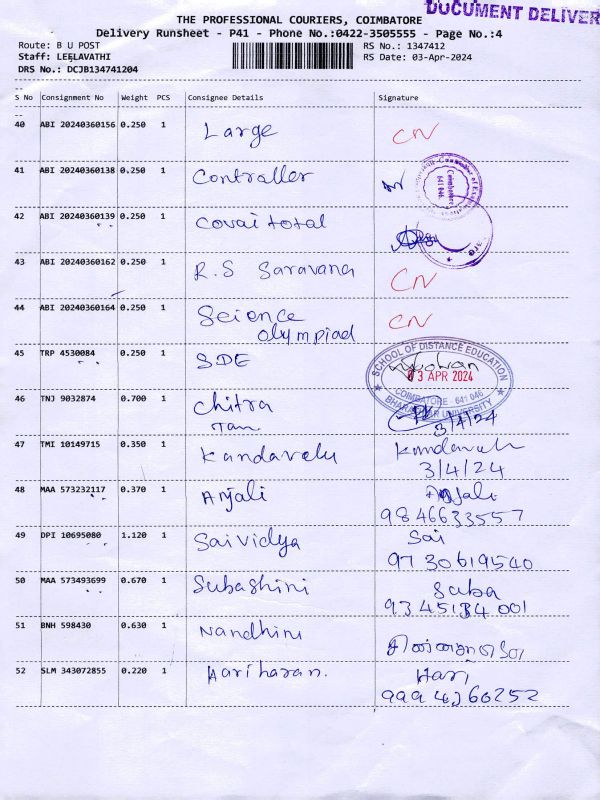 DOCUMENT DELIVER
THE PROFESSIONAL COURIERS, COIMBATORE
Delivery Runsheet - P41 - Phone No.:0422-3505555 - Page No.:4
Route: B U POST
RS No.: 1347412
Staff: LEELAVATHI
RS Date: 03-Apr-2024
DRS No.: DCJB134741204
S No Consignment No Weight PCS Consignee Details Signature
40 ABI 20240360156 0.250 1 Large CN
41 ABI 20240360138 0.250 1 Contraller
Coimbatore
641 046
42 ABI 20240360139 0.250 1 Covai total
43 ABI 20240360162 0.250 1 R.S Saravana CN
44 ABI 20240360164 0.250 1 Science CN
olympiad
45 TRP 4530084 0.250 1 SDE
SCHOOL OF DISTANCE EDUCATION
03 APR 2024
COIMBATORE - 641 046
BHARATHIAR UNIVERSITY
46 TNJ 9032874 0.700 1 Chitra
Tam 3/4/24
47 TMI 10149715 0.350 1 Kandavelu Kandavelu
3/4/24
48 MAA 573232117 0.370 1 Anjali Anjali
9846633557
49 DPI 10695080 1.120 1 Saividya Sai
9730619540
50 MAA 573493699 0.670 1 Subashini Suba
9345134001
51 BNH 598430 0.630 1 Nandhini
52 SLM 343072855 0.220 1 Hariharan. Hari
9994260252